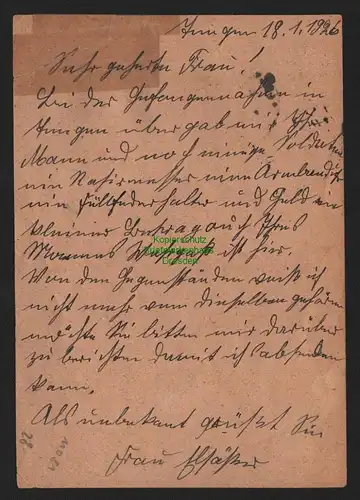 Jungen 18.1.1946
Sehr geehrte Frau!
Bei der Gefangennahme in
Jungen übergab mir Ihr
Mann und noch einige Soldaten
ein Rasiermesser eine Armbanduhr
ein Füllfederhalter und Geld ein
kleiner Betrag auch Ihres
Mannes ist hier.
Von den Gegenständen weiß ich
nicht mehr wem dieselben gehören
möchte Sie bitten mir darüber
zu berichten damit ich absenden
kann.
Als unbekant grüßt Sie
Frau Elsäßer
Kopierschutz
Briefmarkenhaus
Dresden